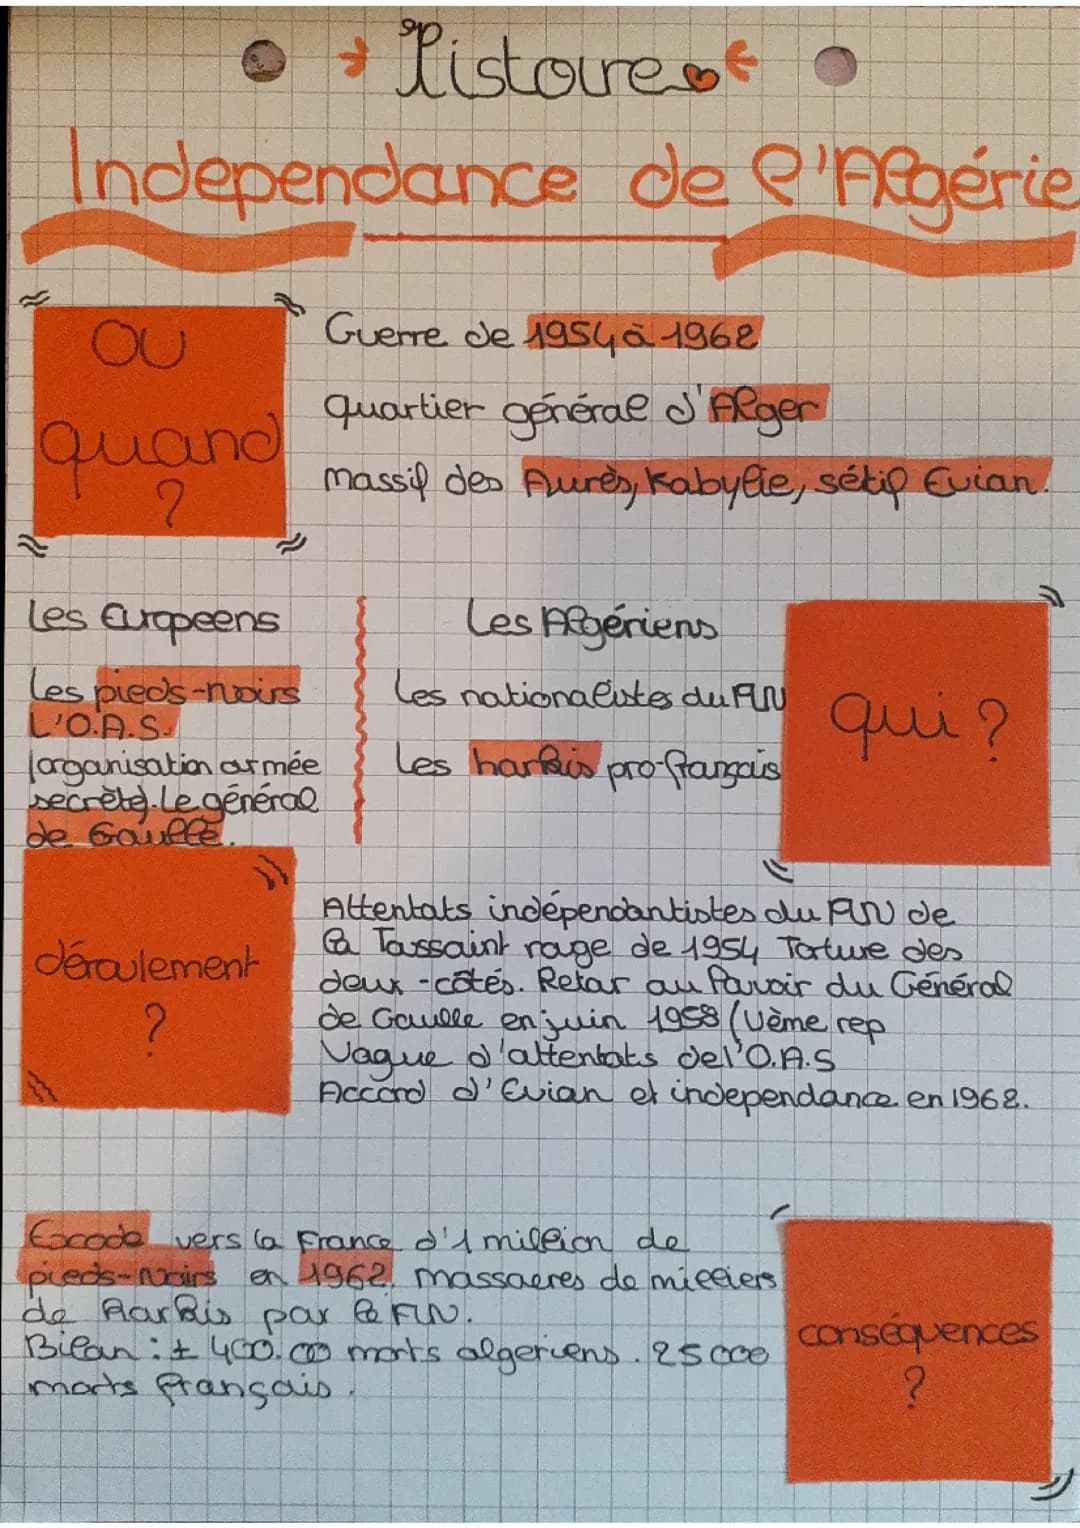 Histoire
Independance de l'Algérie
OU
quand
?
Guerre de 1954 à 1962
quartier général d'Alger
massif des Aurès, Kabylie, sétif Evian.
Les Europeens
Les pieds-noirs
L'O.A.S.
(organisation armée
secrète). Le général
de Gaulle.
Les Algériens
Les nationalistes du FLN
Les harkis pro-français
qui ?
déroulement
?
Attentats indépendantistes du FLN de
la Toussaint rouge de 1954 Torture des
deux-côtés. Retar au Pavoir du Général
de Gaulle en juin 1958 (Vème rep
Vague d'attentats de l'O.A.S
Accord d'Evian et independance en 1962.
Exode vers la France d'1 million de
pieds-noirs en 1962. massacres de milliers
de Harkis par le FLN.
Bilan : ± 400.00 morts algeriens. 25000
morts français.
conséquences
?